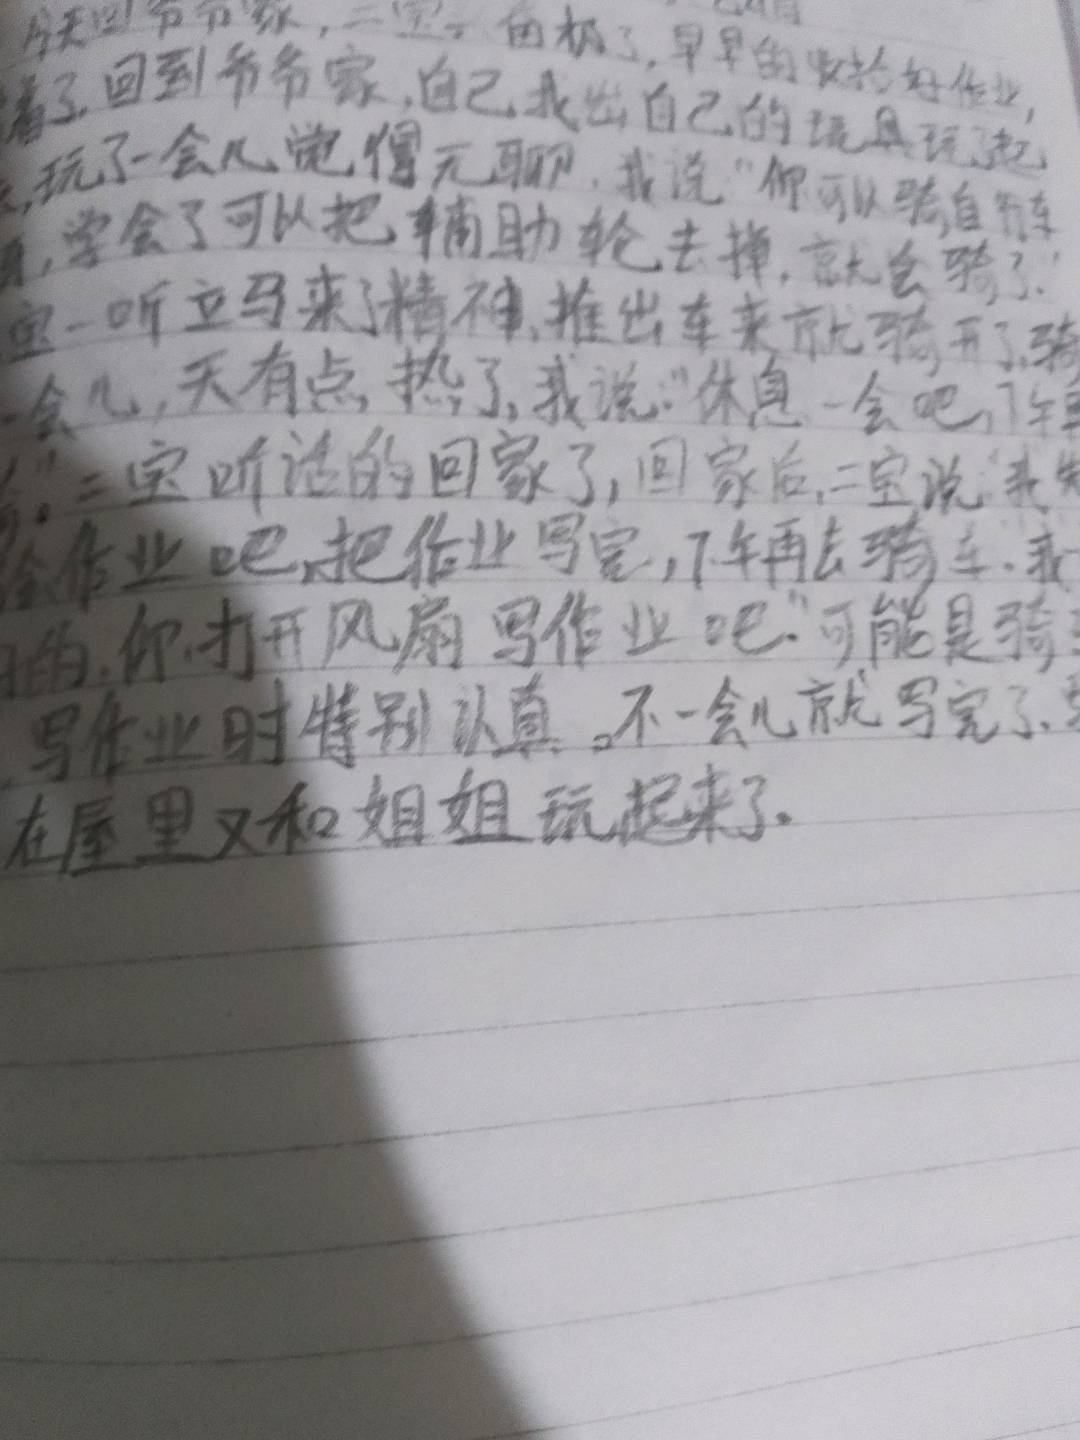 今天回爷爷家,二宝 自 极了,早早的收拾好作业,
着了,回到爷爷家,自己找出自己的玩具玩了起
玩了一会儿觉得无聊,我说"你可以骑自行车
,学会了可以把辅助轮去掉,就会骑了"
宝一听立马来了精神,推出车来就骑开了,骑
一会儿,天有点热了,我说:"休息一会吧,下午再
"。二宝听话的回家了,回家后,二宝说"我先
作业吧,把作业写完,下午再去骑车.我
的,你打开风扇写作业吧."可能是骑
写作业时特别认真。不一会儿就写完了,
在屋里又和姐姐玩起来了.